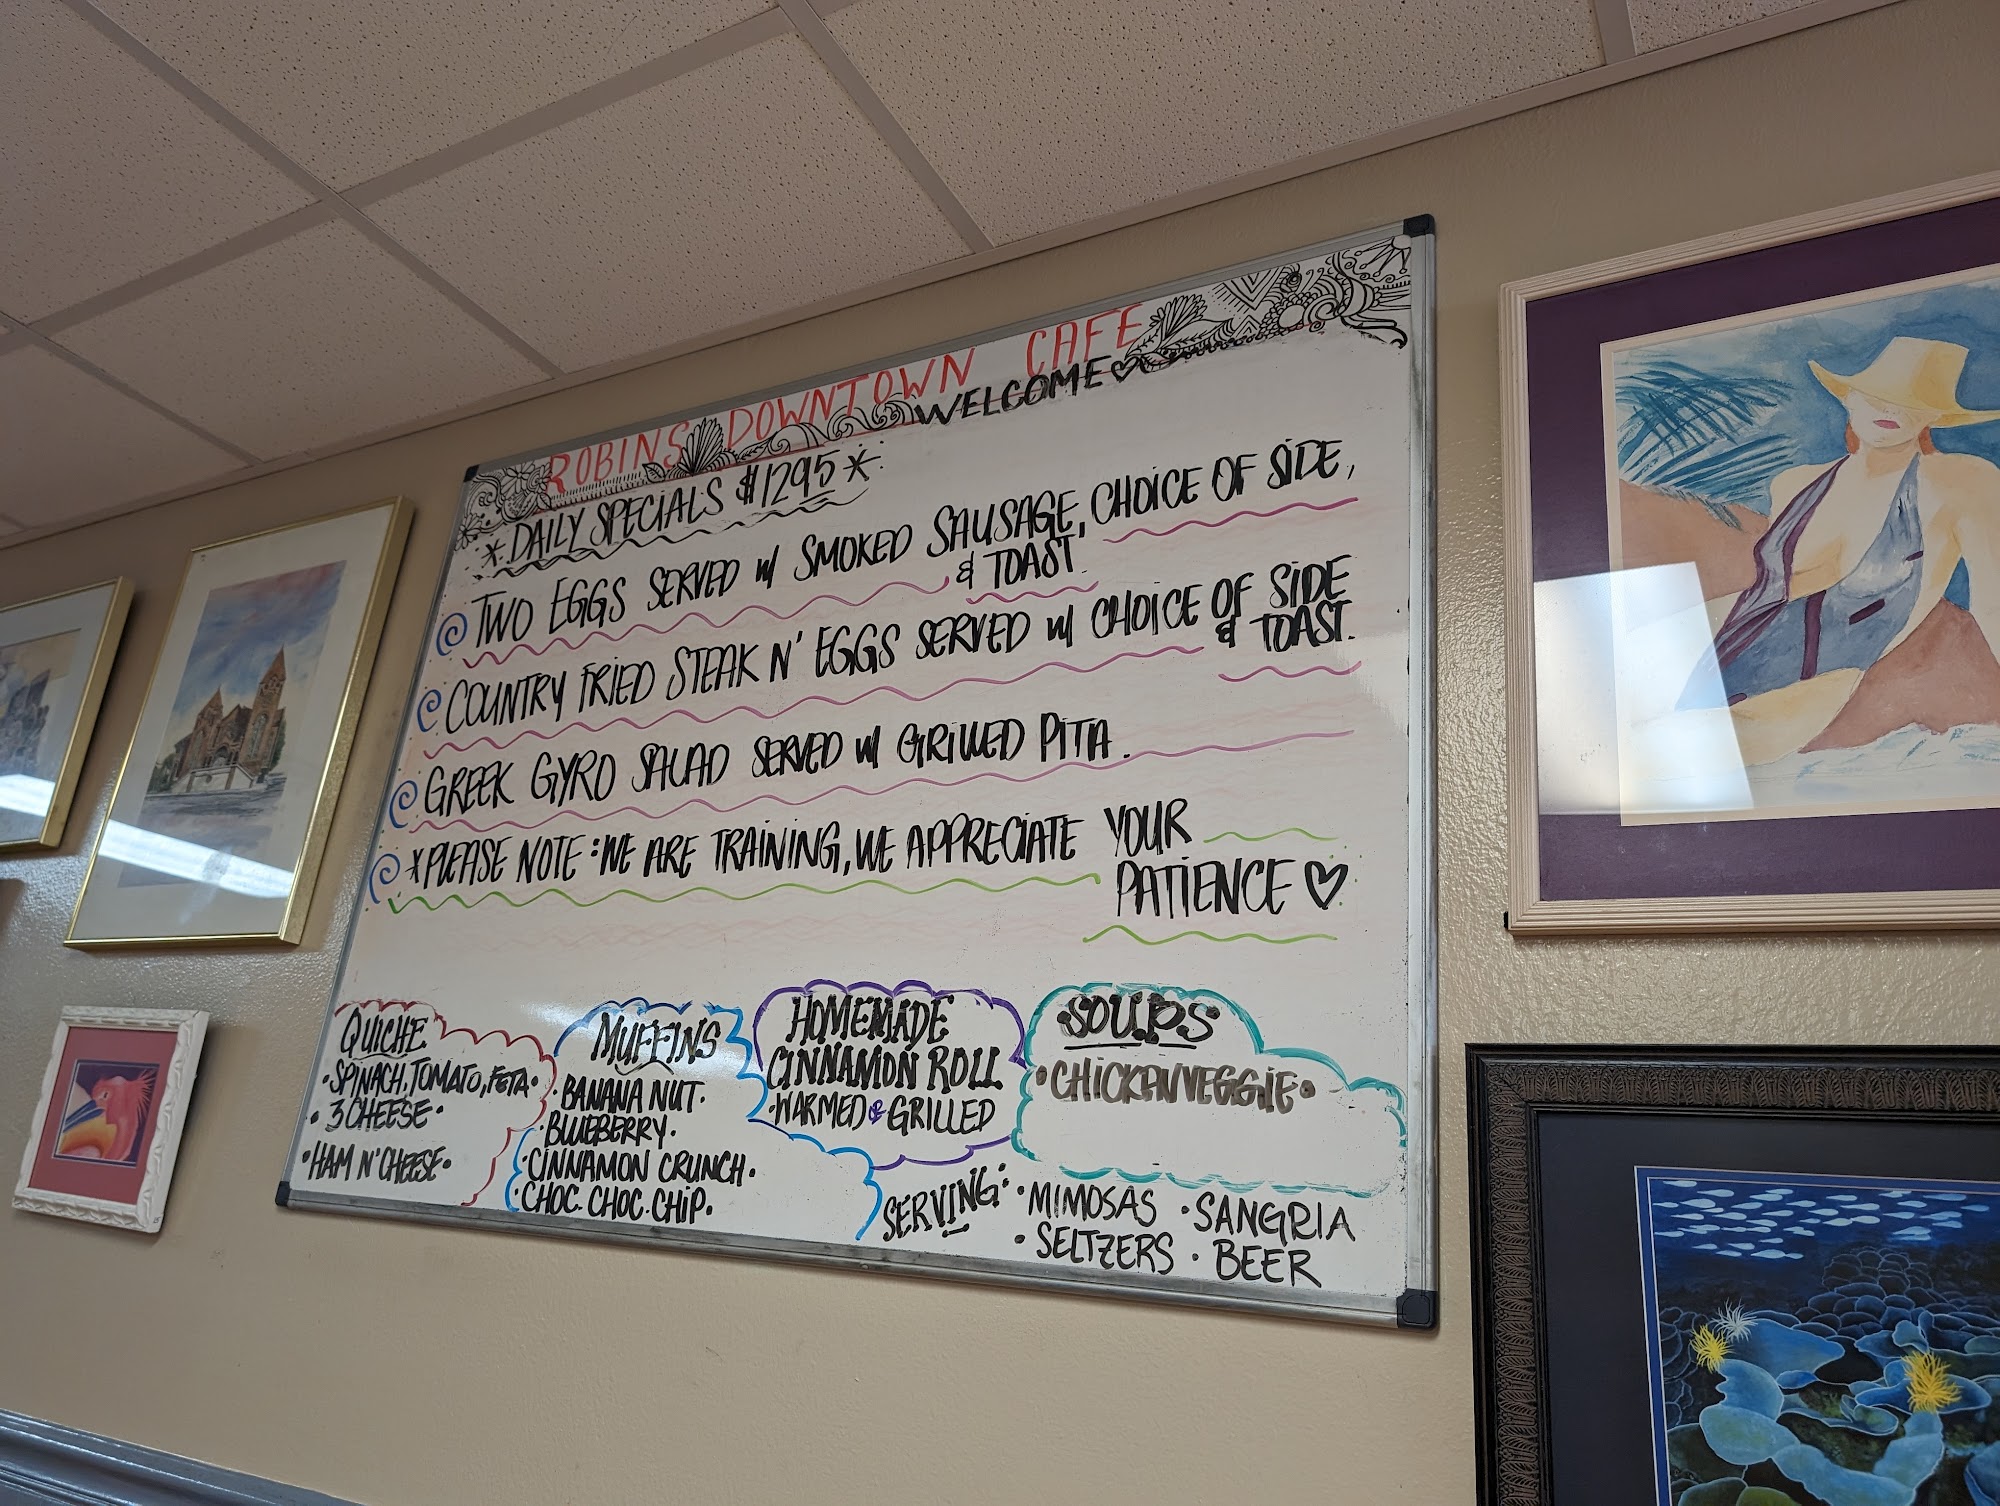 ROBINS DOWNTOWN CAFE
WELCOME♡
*DAILY SPECIALS $12.95*
TWO EGGS SERVED w/ SMOKED SAUSAGE, CHOICE OF SIDE,
& TOAST.
COUNTRY FRIED STEAK N' EGGS SERVED w/ CHOICE OF SIDE
& TOAST.
GREEK GYRO SALAD SERVED w/ GRILLED PITA.
*PLEASE NOTE: WE ARE TRAINING, WE APPRECIATE YOUR
PATIENCE ♡
QUICHE
• SPINACH, TOMATO, FETA •
• 3 CHEESE •
• HAM N' CHEESE •
MUFFINS
• BANANA NUT •
• BLUEBERRY •
• CINNAMON CRUNCH •
• CHOC. CHOC. CHIP •
HOMEMADE
CINNAMON ROLL
• WARMED OR GRILLED
• SOUPS
• CHICKEN VEGGIE •
SERVING: • MIMOSAS • SANGRIA
• SELTZERS • BEER